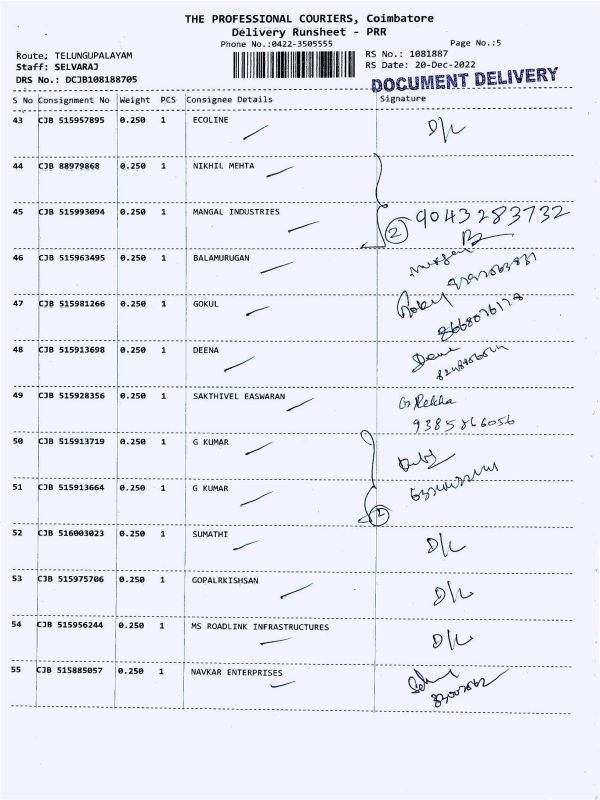 THE PROFESSIONAL COURIERS, Coimbatore
Delivery Runsheet - PRR
Phone No.:0422-3505555
Page No.:5
Route; TELUNGUPALAYAM
RS No.: 1081887
Staff: SELVARAJ
RS Date: 20-Dec-2022
DRS No.: DCJB108188705
DOCUMENT DELIVERY
S No Consignment No Weight PCS Consignee Details Signature
43 CJB 515957895 0.250 1 ECOLINE D/L
44 CJB 88979868 0.250 1 NIKHIL MEHTA
45 CJB 515993094 0.250 1 MANGAL INDUSTRIES 2 9043283732
46 CJB 515963495 0.250 1 BALAMURUGAN
47 CJB 515981266 0.250 1 GOKUL
48 CJB 515913698 0.250 1 DEENA
49 CJB 515928356 0.250 1 SAKTHIVEL EASWARAN G. Rekha
50 CJB 515913719 0.250 1 G KUMAR
51 CJB 515913664 0.250 1 G KUMAR 2
52 CJB 516003023 0.250 1 SUMATHI D/L
53 CJB 515975706 0.250 1 GOPALRKISHSAN D/L
54 CJB 515956244 0.250 1 MS ROADLINK INFRASTRUCTURES D/L
55 CJB 515885057 0.250 1 NAVKAR ENTERPRISES